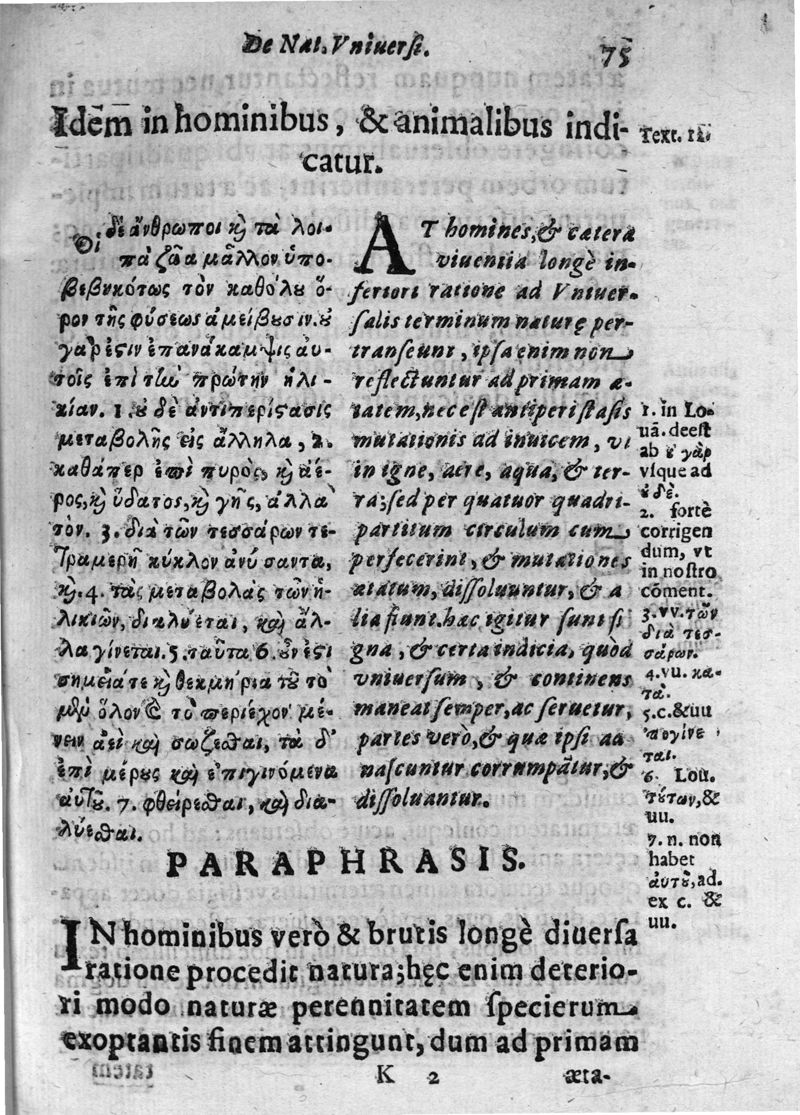 De Nat. Vniuersi.
75
Idem̄ in hominibus, & animalibus indi-
catur.
Text. 11.
Οἱ δὲ ἄνθρωποι κὶ τὰ λοι-
πὰ ζῶα μᾶλλον ὑπο-
βεβηκότως τὸν καθόλου ὅ-
ρον τῆς φύσεως ἀμείβουσιν. ου
γαρ ἐςιν ἐπανάκαμψις ἀυ-
τοῖς ἐπὶ τὴν πρώτην ἡλι-
κίαν. 1. ουδὲ ἀντιπερίςασις
μεταβολῆς εἰς ἄλληλα, 2.
καθάπερ ἐπὶ πυρὸς, κὶ ἀέ-
ρος, κὶ ὕδατος, κὶ γῆς, ἀλλα
τὸν. 3. διὰ τῶν τεσσάρων τε-
τραμερῆ κύκλον ἀνύσαντα,
κὶ. 4. τὰς μεταβολὰς τῶν ἡ-
λικιῶν, διαλύεται, καὶ ἄλ-
λα γίνεται. 5. ταῦτα 6. οὖν ἐςι
σημεῖά τε κὶ θεκμήρια τοῦ τὸ
μὲν ὅλον & τὸ περιέχον μέ-
νειν ἀεὶ καὶ σώζεσθαι, τὰ δ'
ἐπὶ μέρους καὶ ἐπιγινόμενα
αὐτοῦ. 7. φθείρεσθαι, καὶ δια-
λύεσθαι.
AT homines, & cætera
viuentia longè in-
feriori ratione ad Vniuer-
salis terminum naturę per-
transeunt, ipsa enim non
reflectuntur ad primam æ-
tatem, nec est antiperistasis
mutationis ad inuicem, vt
in igne, aere, aqua, & ter-
ra; sed per quatuor quadri-
partitum circulum cum
perfecerint, & mutationes
ætatum, dissoluuntur, & a
lia fiunt. hæc igitur sunt si
gna, & certa indicia, quòd
vniuersum, & continens
maneat semper, ac seruetur,
partes verò, & quæ ipsi ad
nascuntur corrumpãtur, &
dissoluantur.
1. in Lo-
uã. deest
ab ου γὰρ
vsque ad
ουδὲ.
2. fortè
corrigen
dum, vt
in nostro
cōment.
3. vv. τῶν
διὰ τεσ-
σάρων.
4. vu. κα-
τὰ.
5. c. & uu
ἀπογίνε
ται.
6. Lou.
τούτων, &
uu.
7. n. non
habet
αὐτοῦ, ad.
ex c. &
uu.
PARAPHRASIS.
IN hominibus verò & brutis longè diuersa
ratione procedit natura; hęc enim deterio-
ri modo naturæ perennitatem specierum
exoptantis finem attingunt, dum ad primam
K 2
æta-